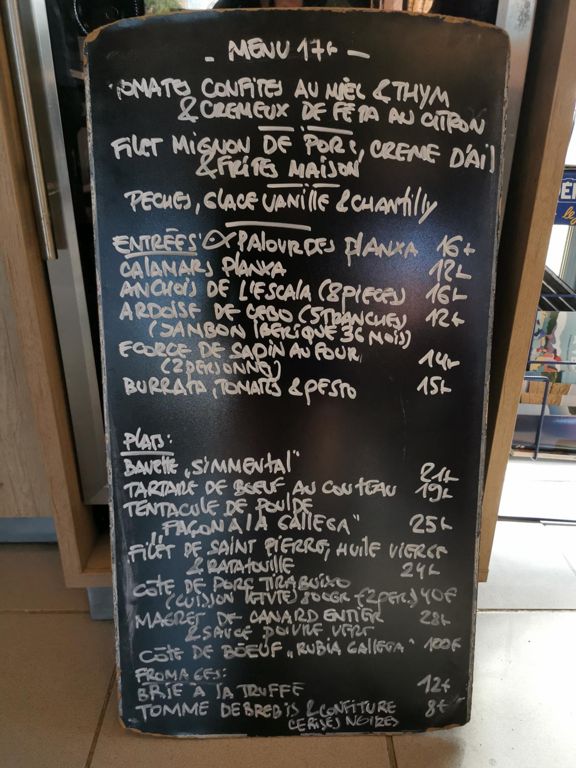 - MENU 17€ -
TOMATES CONFITES AU MIEL & THYM
& CREMEUX DE FETA AU CITRON
FILET MIGNON DE PORC, CREME D'AIL
& FRITES MAISON
PECHES, GLACE VANILLE & CHANTILLY
ENTRÉES: PALOURDES PLANXA 16€
CALAMARS PLANXA 12€
ANCHOIS DE L'ESCALA (8 PIECES) 16€
ARDOISE DE CEBO (5 TRANCHES) 12€
(JAMBON IBERIQUE 36 MOIS)
ECORCE DE SAPIN AU FOUR 14€
(2 PERSONNE)
BURRATA, TOMATES & PESTO 15€
PLATS:
BAVETTE "SIMMENTAL" 21€
TARTARE DE BOEUF AU COUTEAU 19€
TENTACULE DE POULPE
"FAÇON A LA GALLEGA" 25€
FILET DE SAINT PIERRE, HUILE VIERGE
& RATATOUILLE 24€
CÔTE DE PORC TIRABUIXO
(CUISSON LENTE) 800GR (2 PERS.) 40€
MAGRET DE CANARD ENTIER 28€
& SAUCE POIVRE VERT
CÔTE DE BOEUF "RUBIA GALLEGA" 100€
FROMAGES:
BRIE A LA TRUFFE 12€
TOMME DE BREBIS & CONFITURE 8€
CERISES NOIRES